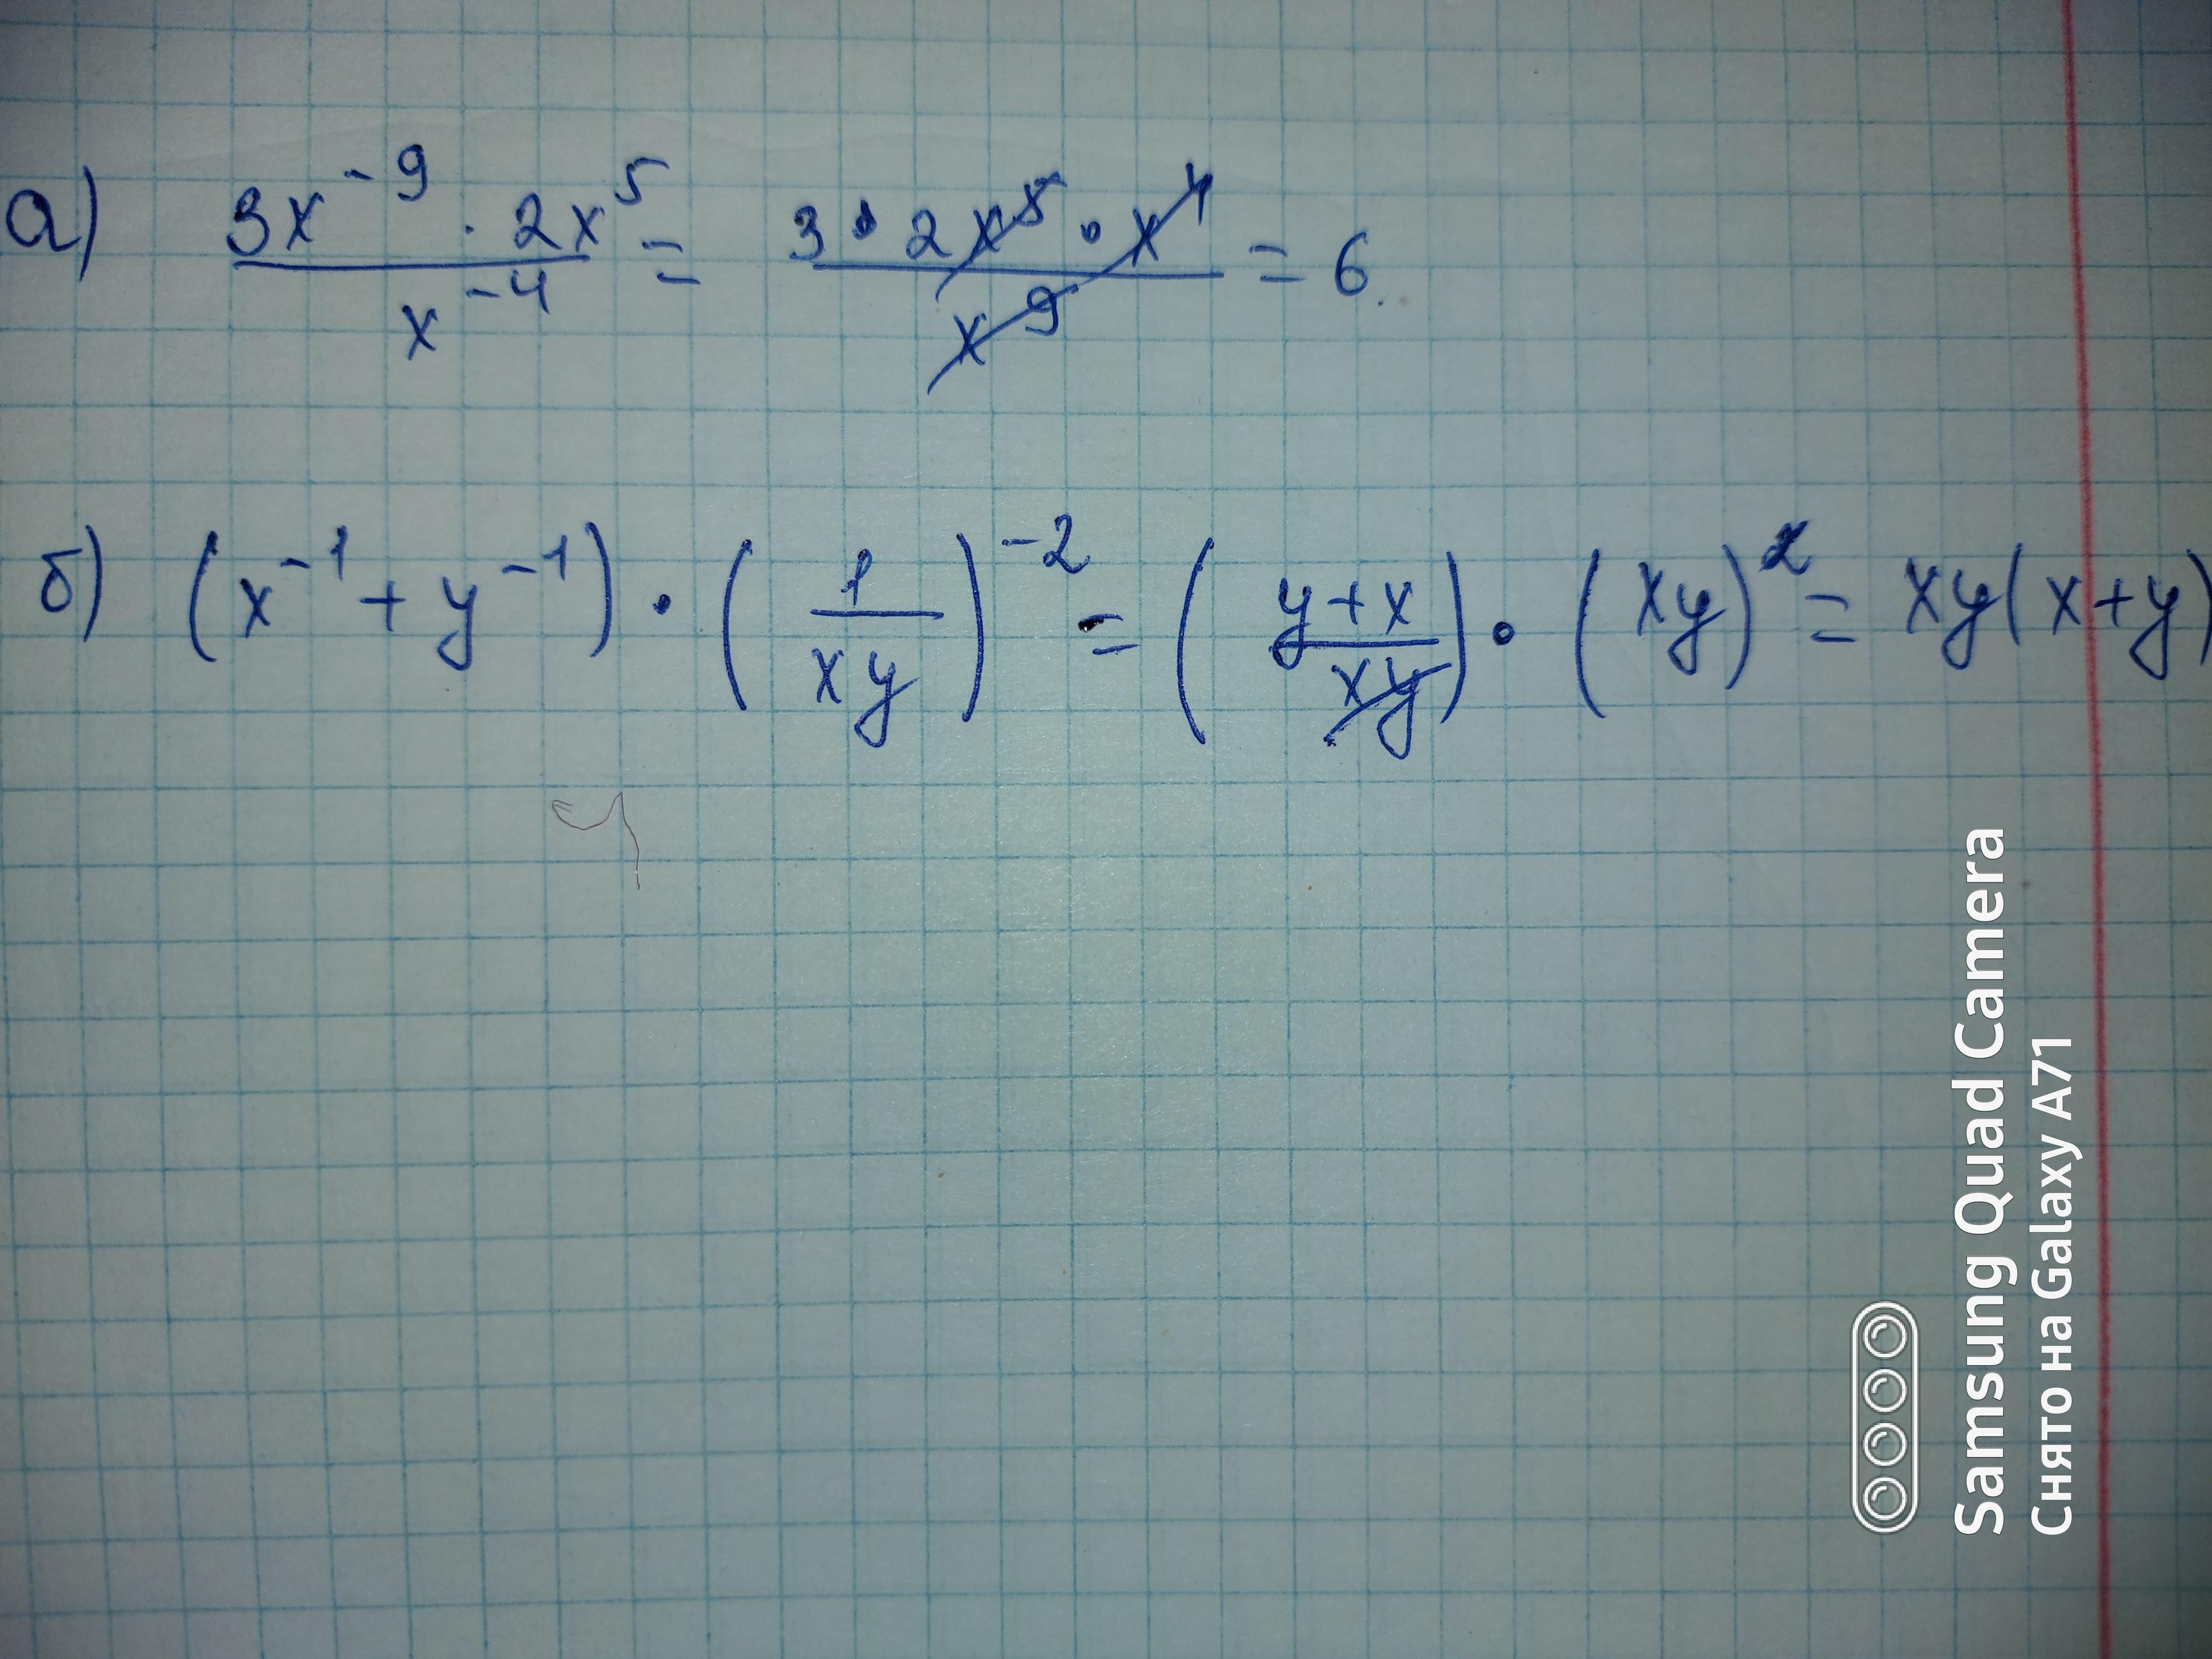 а) 3x⁻⁹ · 2x⁵ / x⁻⁴ = 3 · 2x⁵ · x⁴ / x⁹ = 6.
б) (x⁻¹ + y⁻¹) · (1 / xy)⁻² = (y + x / xy) · (xy)² = xy(x+y)
Samsung Quad Camera
Снято на Galaxy A71